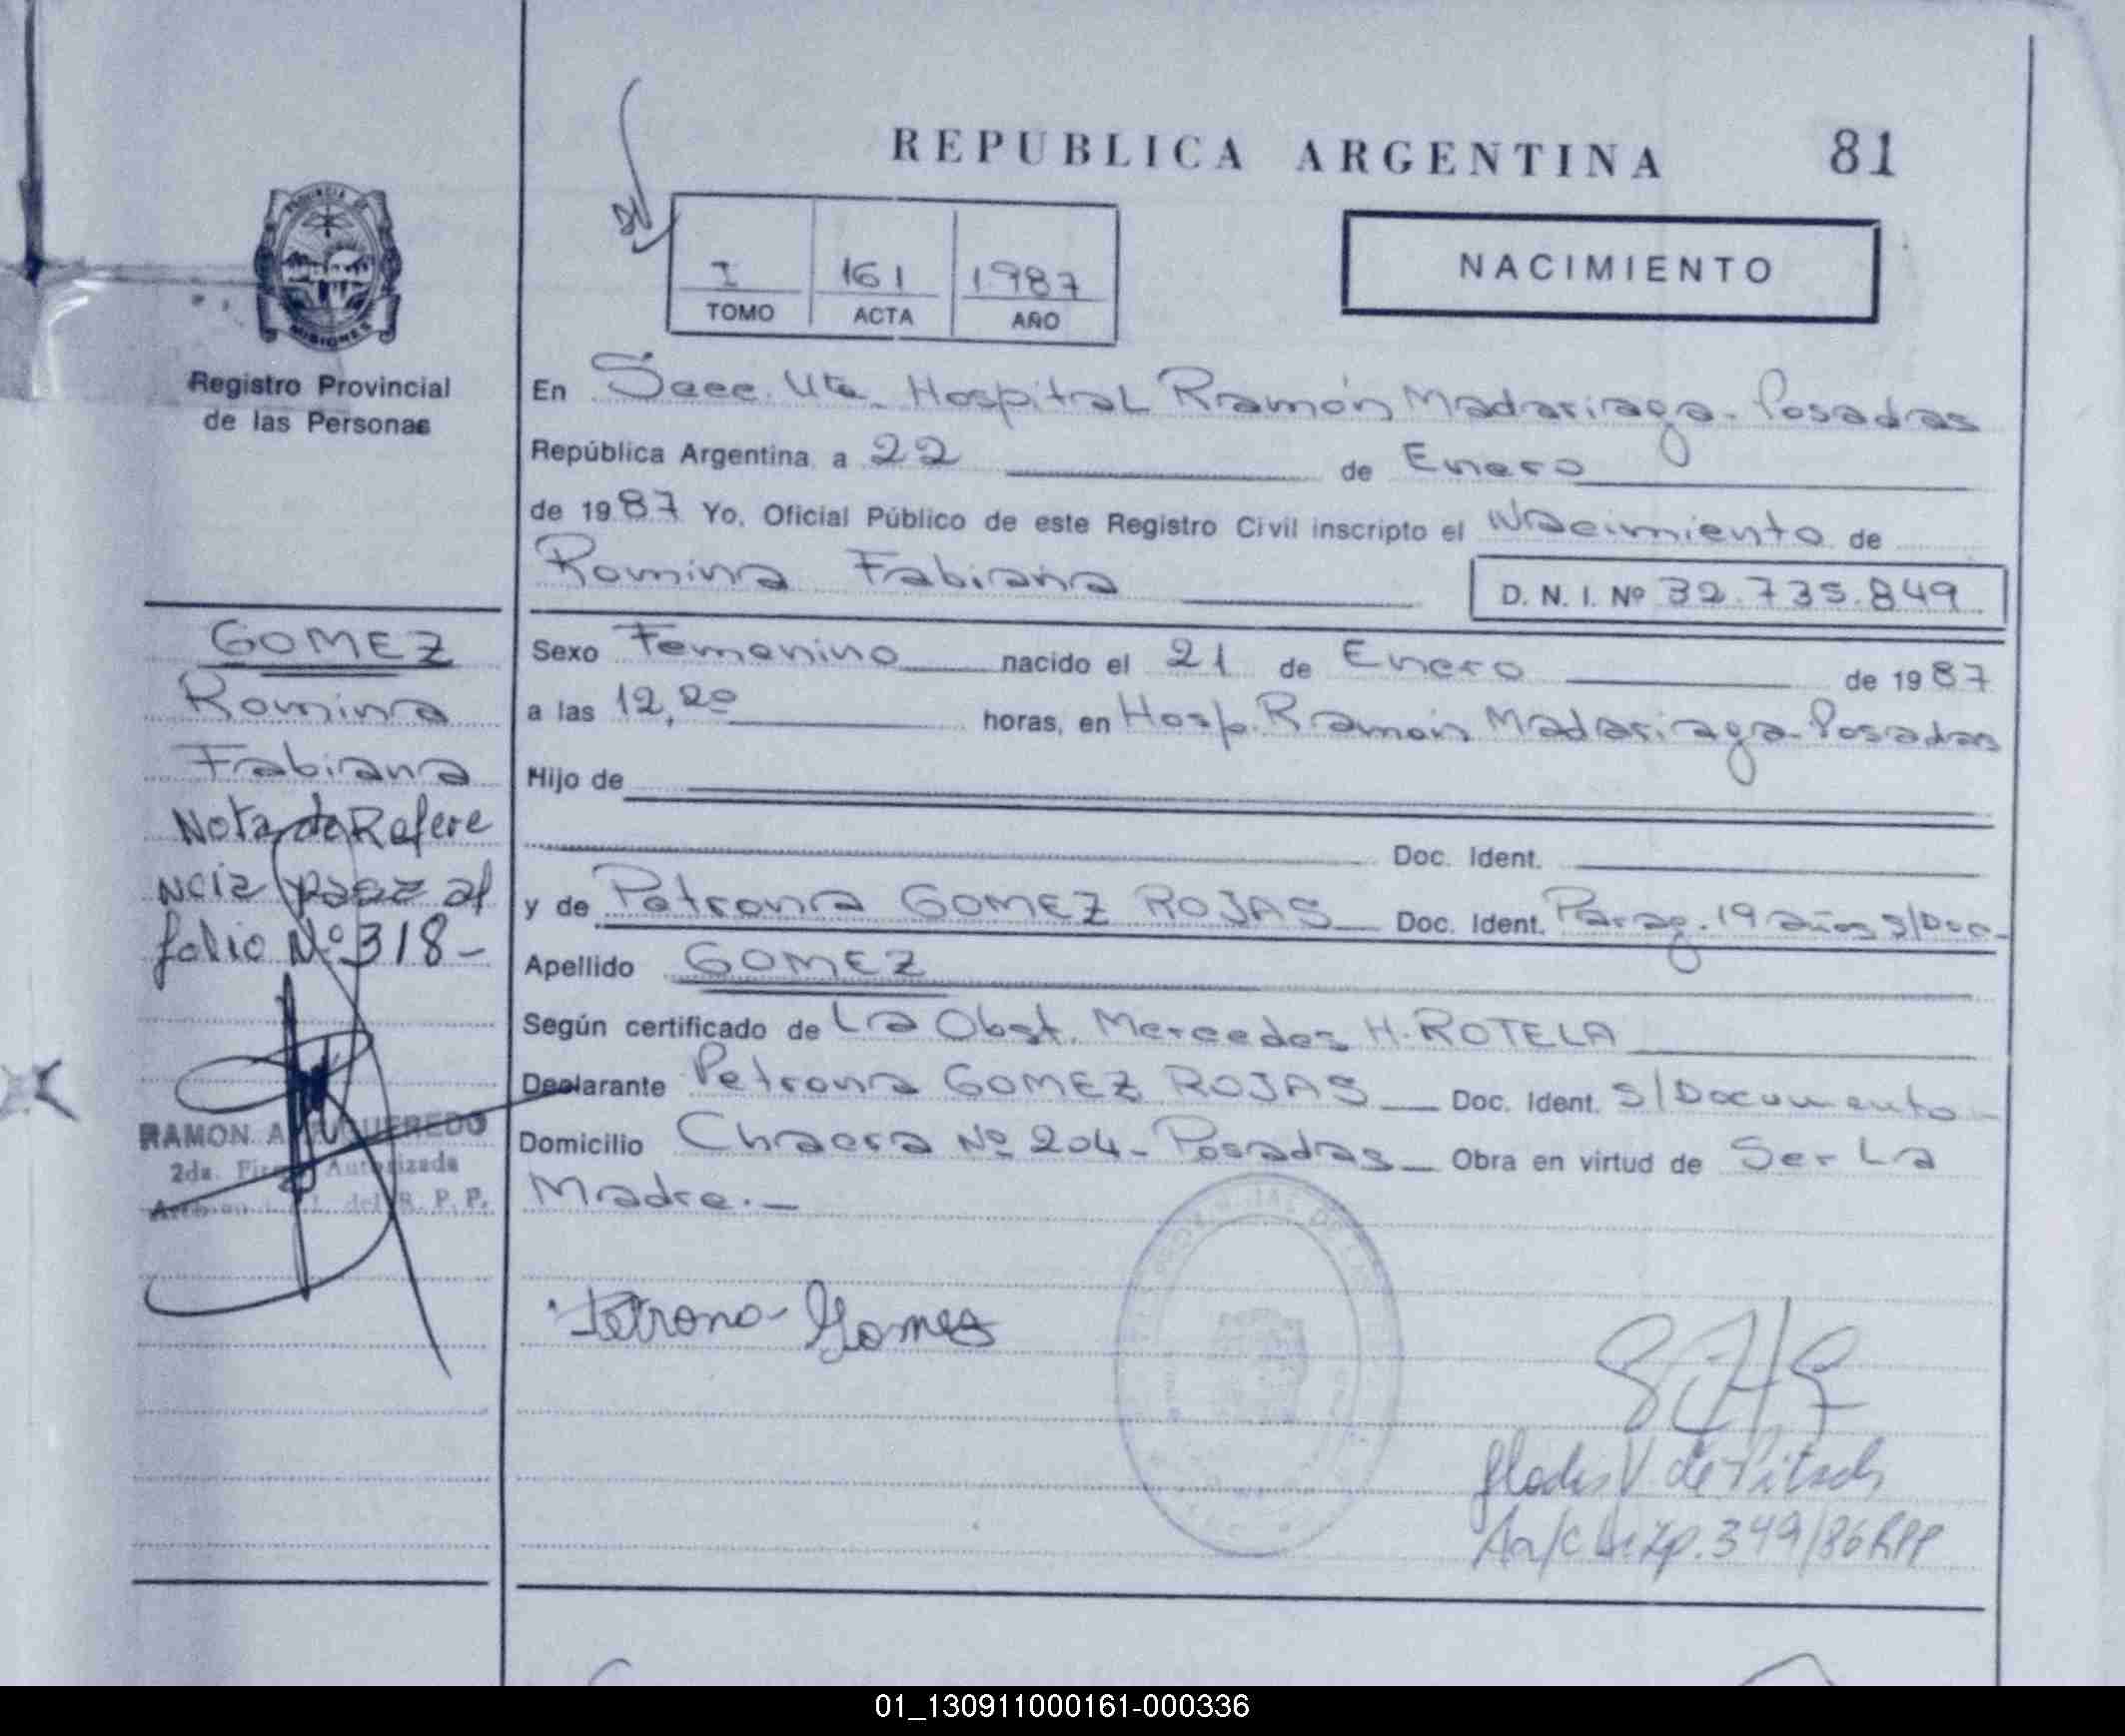 REPUBLICA ARGENTINA
81
I 161 1987
TOMO ACTA AÑO
NACIMIENTO
PROVINCIA DE
MISIONES
Registro Provincial
de las Personas
En Secc. Uta. Hospital Ramón Madariaga - Posadas
República Argentina a 22 de Enero
de 1987 Yo, Oficial Público de este Registro Civil inscripto el Nacimiento de
Romina Fabiana
D. N. I. Nº 32.735.849
Sexo Femenino nacido el 21 de Enero de 1987
a las 12,20 horas, en Hosp. Ramón Madariaga - Posadas
Hijo de
Doc. Ident.
y de Petrona GOMEZ ROJAS Doc. Ident. Parag. 19 años S/Doc.
Apellido GOMEZ
Según certificado de La Obst. Mercedes H. ROTELA
Declarante Petrona GOMEZ ROJAS Doc. Ident. S/Documento
Domicilio Chacra Nº 204 - Posadas Obra en virtud de Ser La
Madre.
GOMEZ
Romina
Fabiana
Nota de Refere
ncia pasa al
folio Nº 318-
RAMON A.
2da. Firma Autorizada
del R. P. P.
Petrona Gomes
Gladis V. de
349/86 RPP
01_130911000161-000336